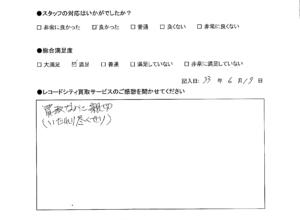 ●スタッフの対応はいかがでしたか？
□ 非常に良かった ☑ 良かった □ 普通 □ 良くない □ 非常に良くない
●総合満足度
□ 大満足 ☑ 満足 □ 普通 □ 満足していない □ 非常に満足していない
記入日: 33 年 6 月 19 日
●レコードシティ買取サービスのご感想を聞かせてください
買取なのに親切
(いたれり尽くせり)